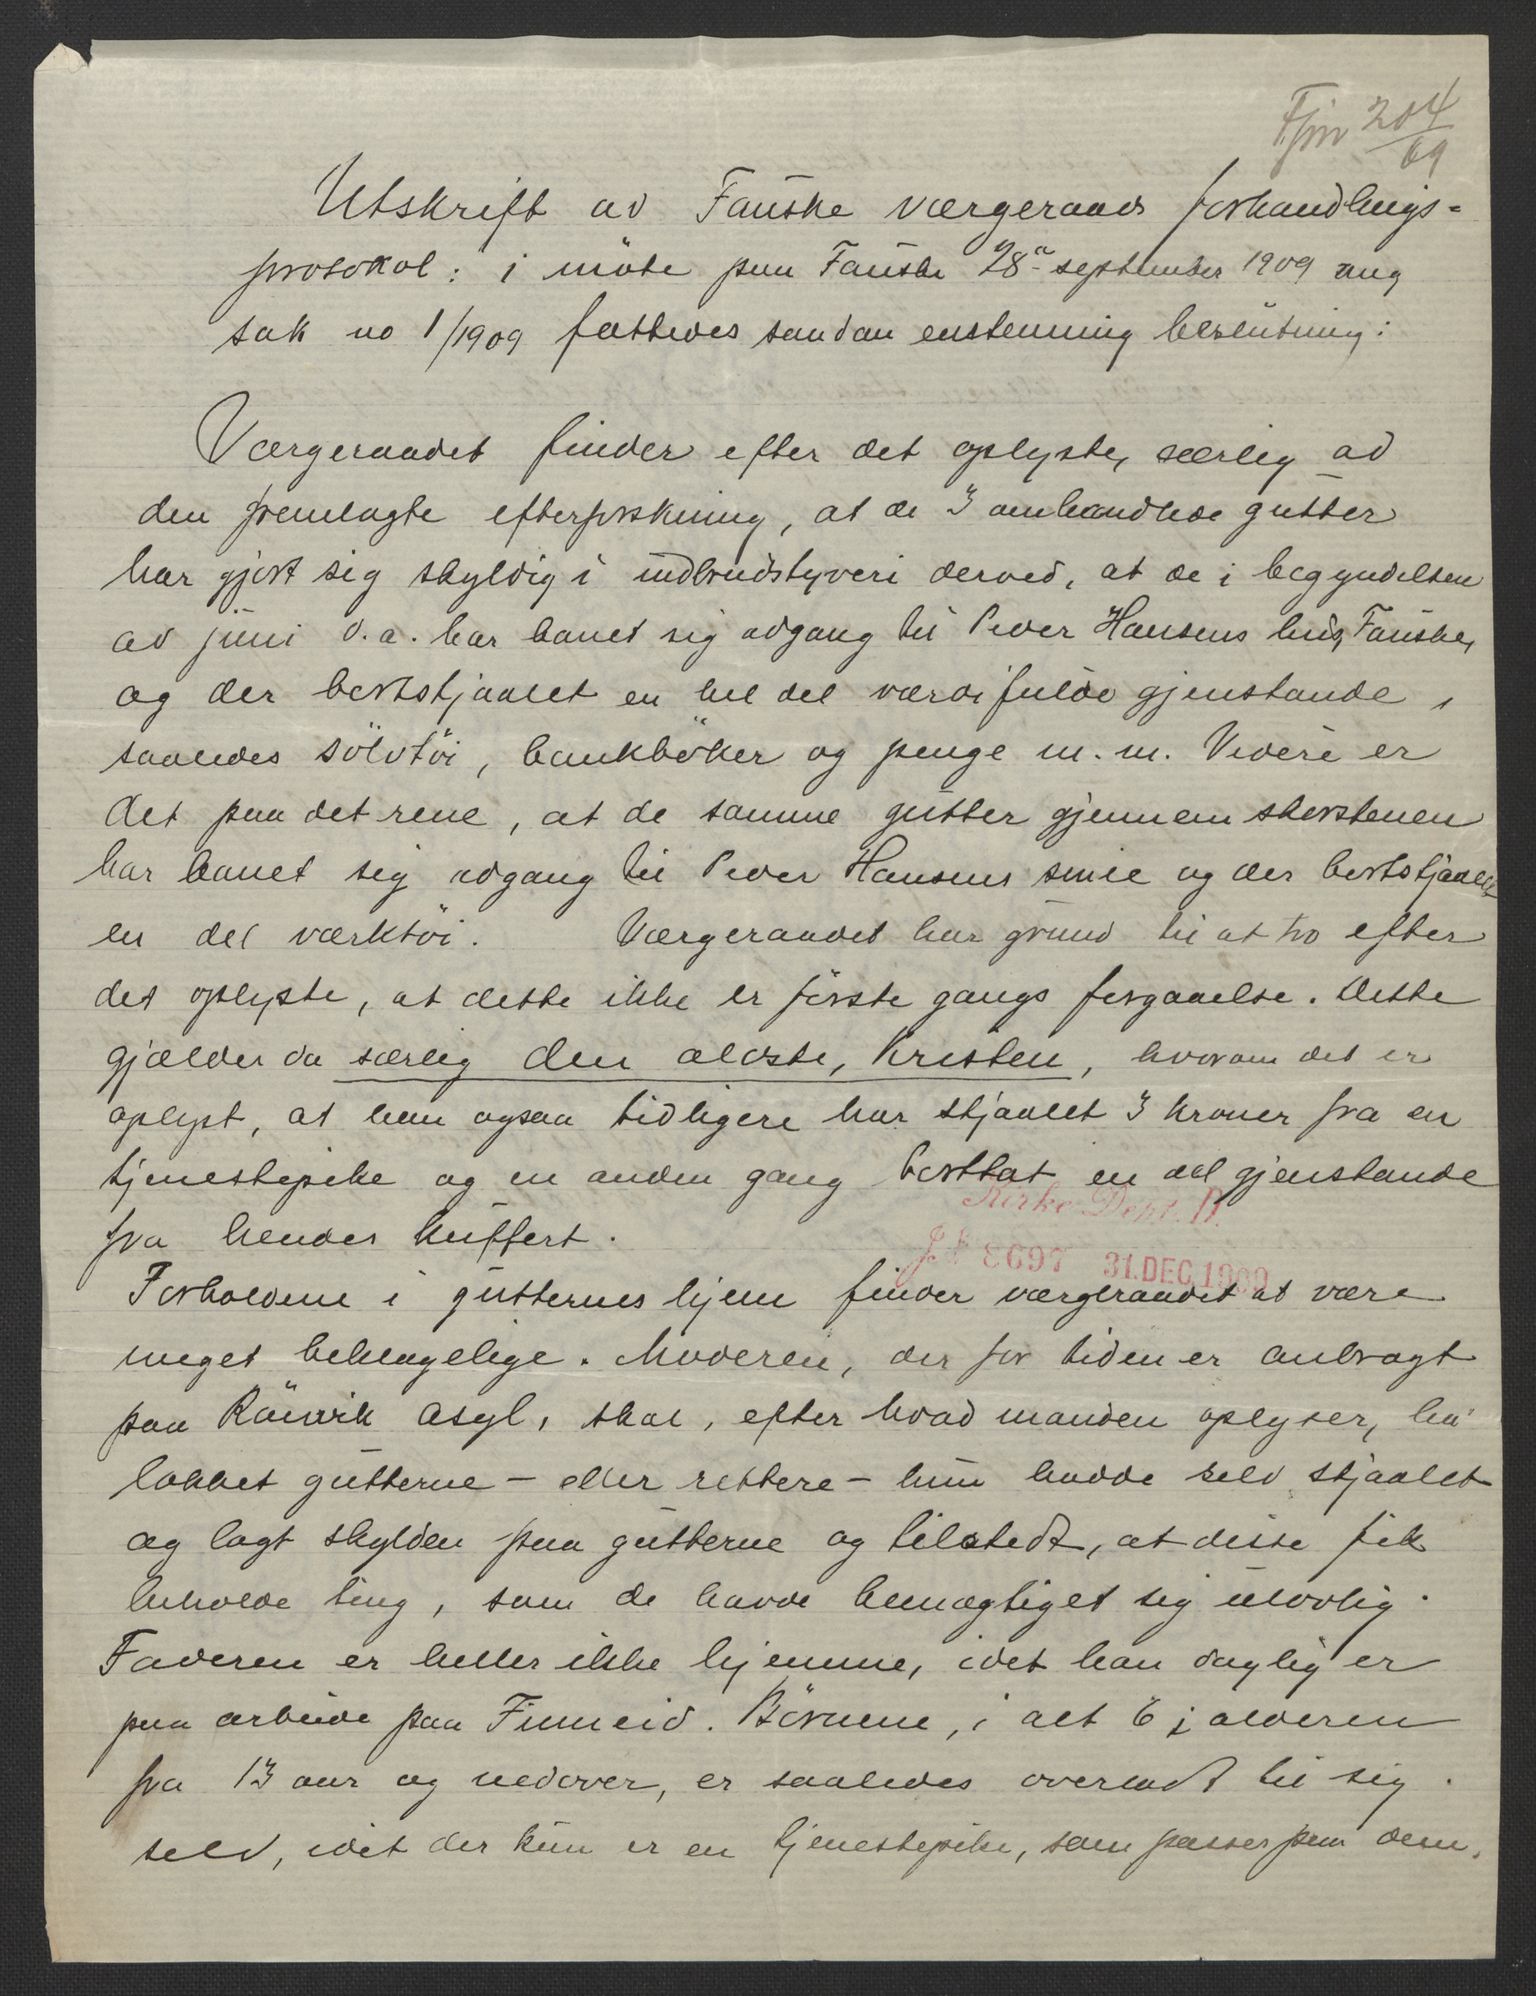 Fjm 204/09
Utskrift av Fauske værgeraads forhandlings-
protokol: i möte paa Fauske 28de september 1909 ang
sak no 1/1909 fattedes saadan enstemmig beslutning:
Værgeraadet finder efter det oplyste, særlig av
den fremlagte efterforskning, at de 3 omhandlede gutter
har gjort sig skyldig i indbrudstyveri derved, at de i begyndelsen
av juni d.a. har banet sig adgang til Peder Hansens hus, Fauske,
og der bortstjaalet en hel del værdifulde gjenstande,
saaledes sölvtöi, bankböker og penge m.m. Videre er
det paa det rene, at de samme gutter gjennem skorstenen
har banet sig adgang til Peder Hansens smie og der bortstjaalet
en del værktöi. Værgeraadet har grund til at tro efter
det oplyste, at dette ikke er förste gangs forgaaelse. Dette
gjælder da særlig den ældste, Kristen, hvorom det er
oplyst, at han ogsaa tidligere har stjaalet 3 kroner fra en
tjenestepike og en anden gang borttat en del gjenstande
fra hendes kuffert.
Kirke-Dept. B.
J. № 3697 31.DEC.1909
Forholdene i gutternes hjem finder værgeraadet at være
meget beklagelige. Moderen, der for tiden er anbragt
paa Rönvik asyl, skal, efter hvad manden oplyser, ha
lokket gutterne – eller rettere – hun hadde selv stjaalet
og lagt skylden paa gutterne og tilstedt, at disse fik
beholde ting, som de havde bemægtiget sig ulovlig.
Faderen er heller ikke hjemme, idet han daglig er
paa arbeide paa Finneid. Börnene, i alt 6 i alderen
fra 13 aar og nedover, er saaledes overladt til sig
selv, idet der kun er en tjenestepike, som passer paa dem.